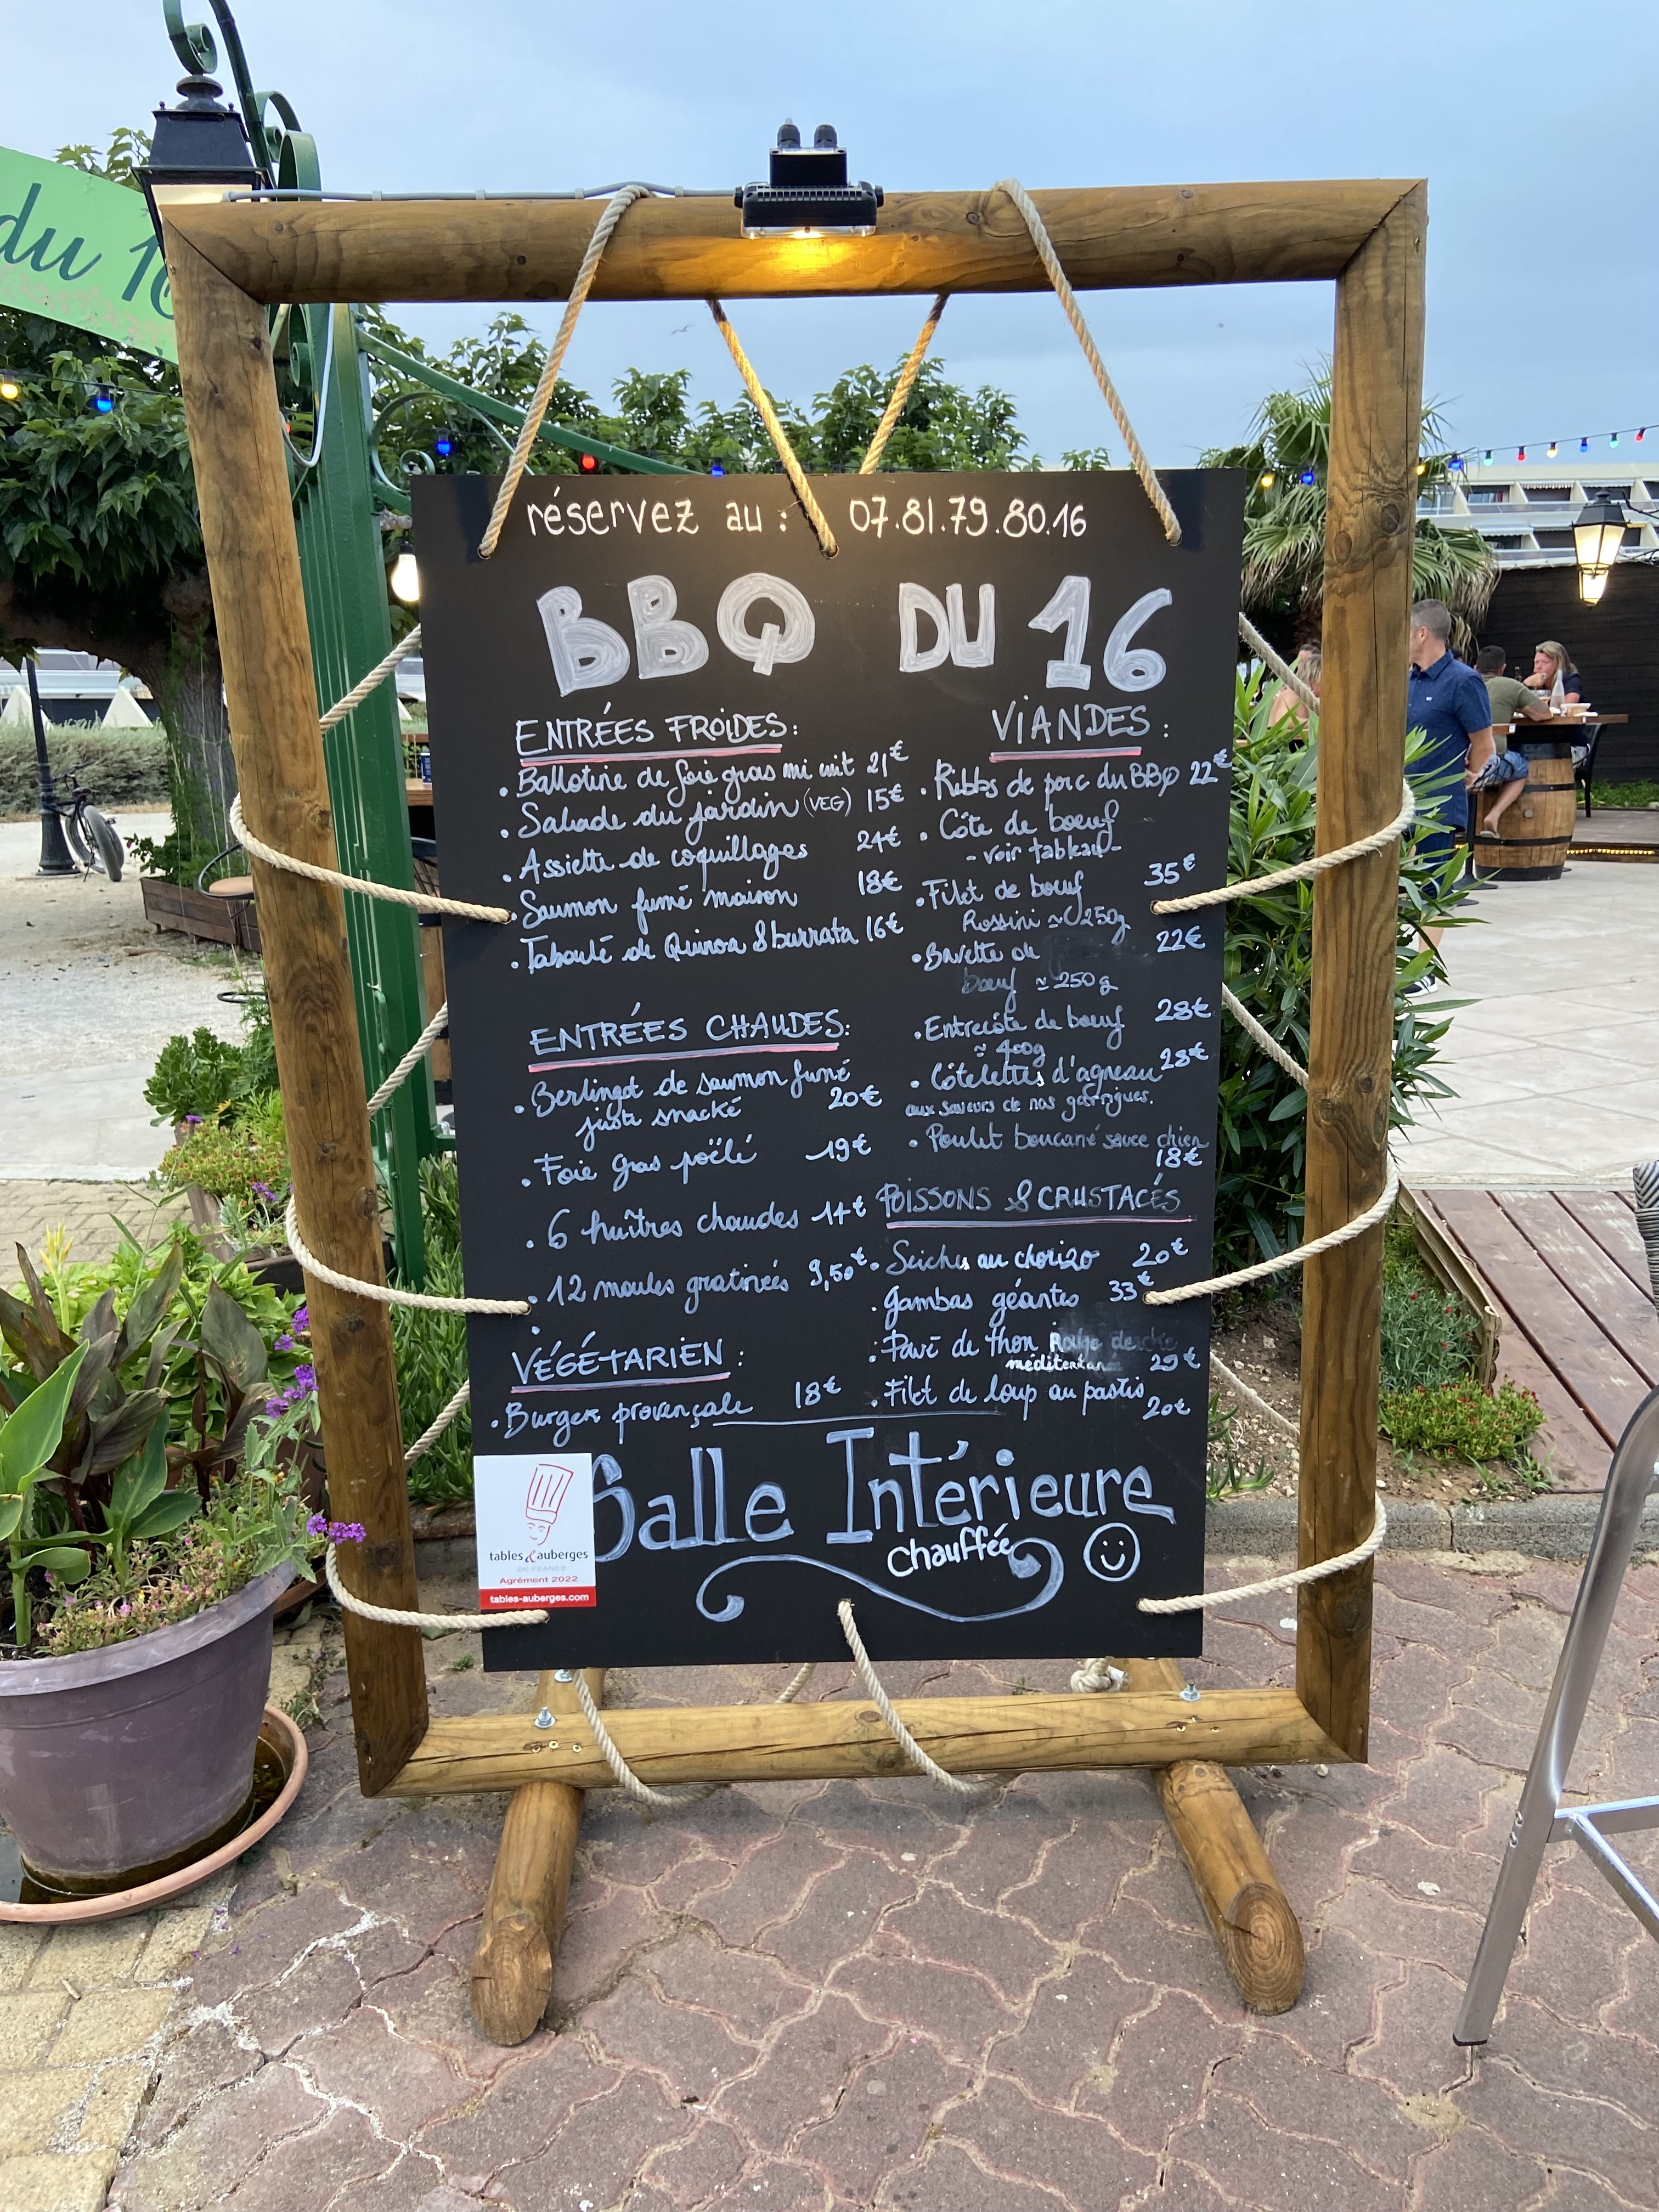 du 16
réservez au : 07.81.79.80.16
BBQ DU 16
ENTRÉES FROIDES :
. Ballotine de foie gras mi cuit 21€
. Salade du jardin (VEG) 15€
. Assiette de coquillages 24€
. Saumon fumé maison 18€
. Taboulé de Quinoa & burrata 16€
ENTRÉES CHAUDES :
. Berlingot de saumon fumé
juste snacké 20€
. Foie gras poëlé 19€
. 6 huîtres chaudes 14€
. 12 moules gratinées 9,50€
.
VÉGÉTARIEN :
. Burger provençale 18€
VIANDES :
. Ribbs de porc du BBQ 22€
. Côte de boeuf
- voir tableau -
. Filet de boeuf 35€
Rossini ≈ 250g
. Bavette de 22€
boeuf ≈ 250 g
. Entrecôte de boeuf 28€
≈ 400g
. Côtelettes d'agneau 28€
aux saveurs de nos garrigues.
. Poulet boucané sauce chien
18€
POISSONS & CRUSTACÉS
. Seiches au chorizo 20€
. Gambas géantes 33€
. Pavé de thon Rouge de
méditerranée 29€
. Filet de loup au pastis
20€
Salle Intérieure
chauffée
tables & auberges
DE FRANCE
Agrément 2022
tables-auberges.com